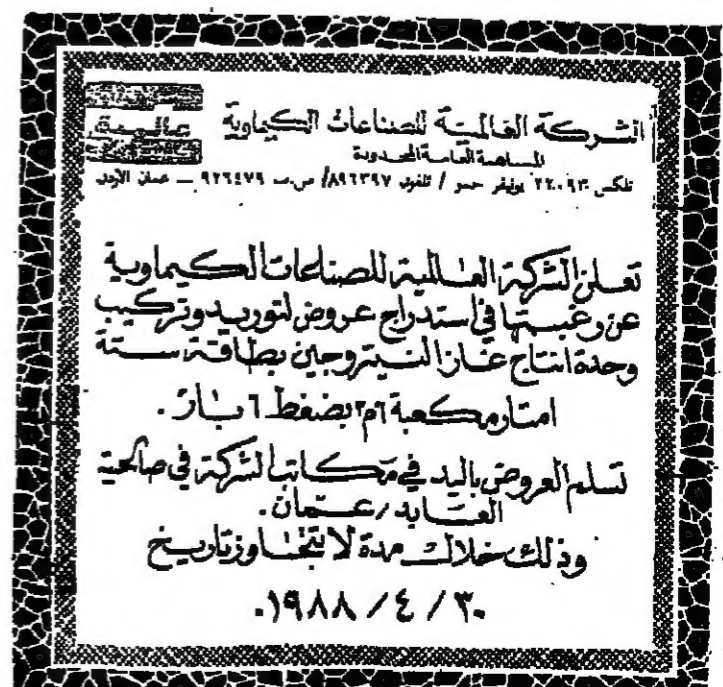 الشركة العالمية للصناعات الكيماوية
المساهمة العامة المحدودة
تلكس ٢٢٠٩٣ يونيفر حمو / تلفون ٨٩٦٣٩٧/ ص.ب ٩٢٦٤٧٩ — عمان الاردن
تعلن الشركة العالمية للصناعات الكيماوية
عن رغبتها في استدراج عروض لتوريد وتركيب
وحدة انتاج غاز النيتروجين بطاقة ستة
امتار مكعبة ٦م٣ بضغط ٦ بار .
تسلم العروض باليد في مكاتب الشركة في صالحية
العابد / عمان .
وذلك خلال مدة لا يتجاوز تاريخ
٣٠ / ٤ / ١٩٨٨ .